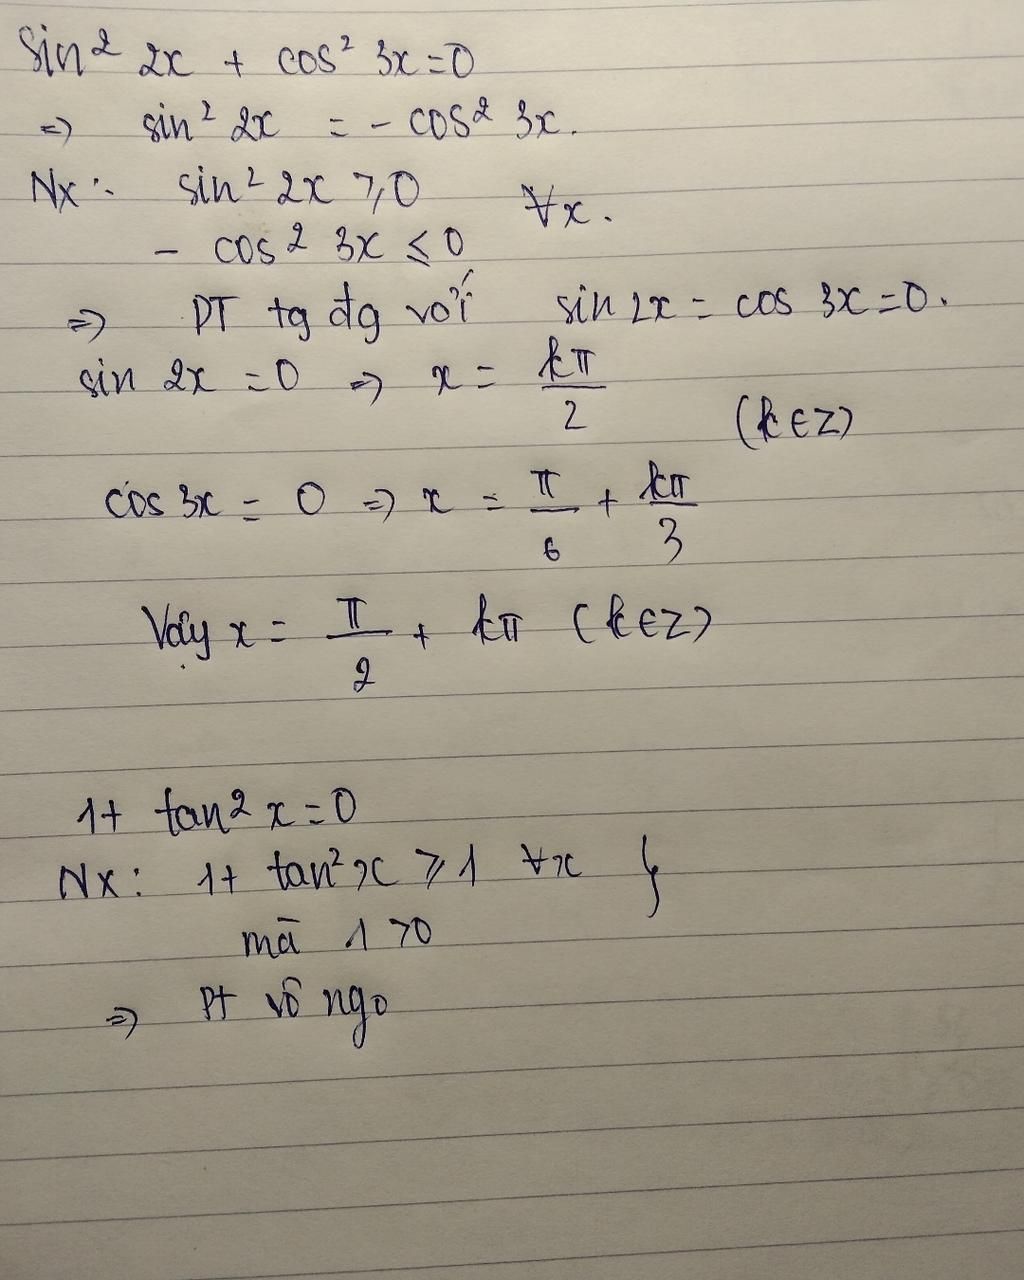 Sin² 2x + cos² 3x = 0
=> sin² 2x = - cos² 3x.
Nx: sin² 2x ⩾ 0 ∀x.
- cos² 3x ⩽ 0
=> PT tg đg với sin 2x = cos 3x = 0.
sin 2x = 0 => x = kπ/2 (k ∈ Z)
cos 3x = 0 => x = π/6 + kπ/3
Vậy x = π/2 + kπ (k ∈ Z)
1 + tan² x = 0
Nx: 1 + tan² x ⩾ 1 ∀x }
mà 1 > 0
=> Pt vô ngo